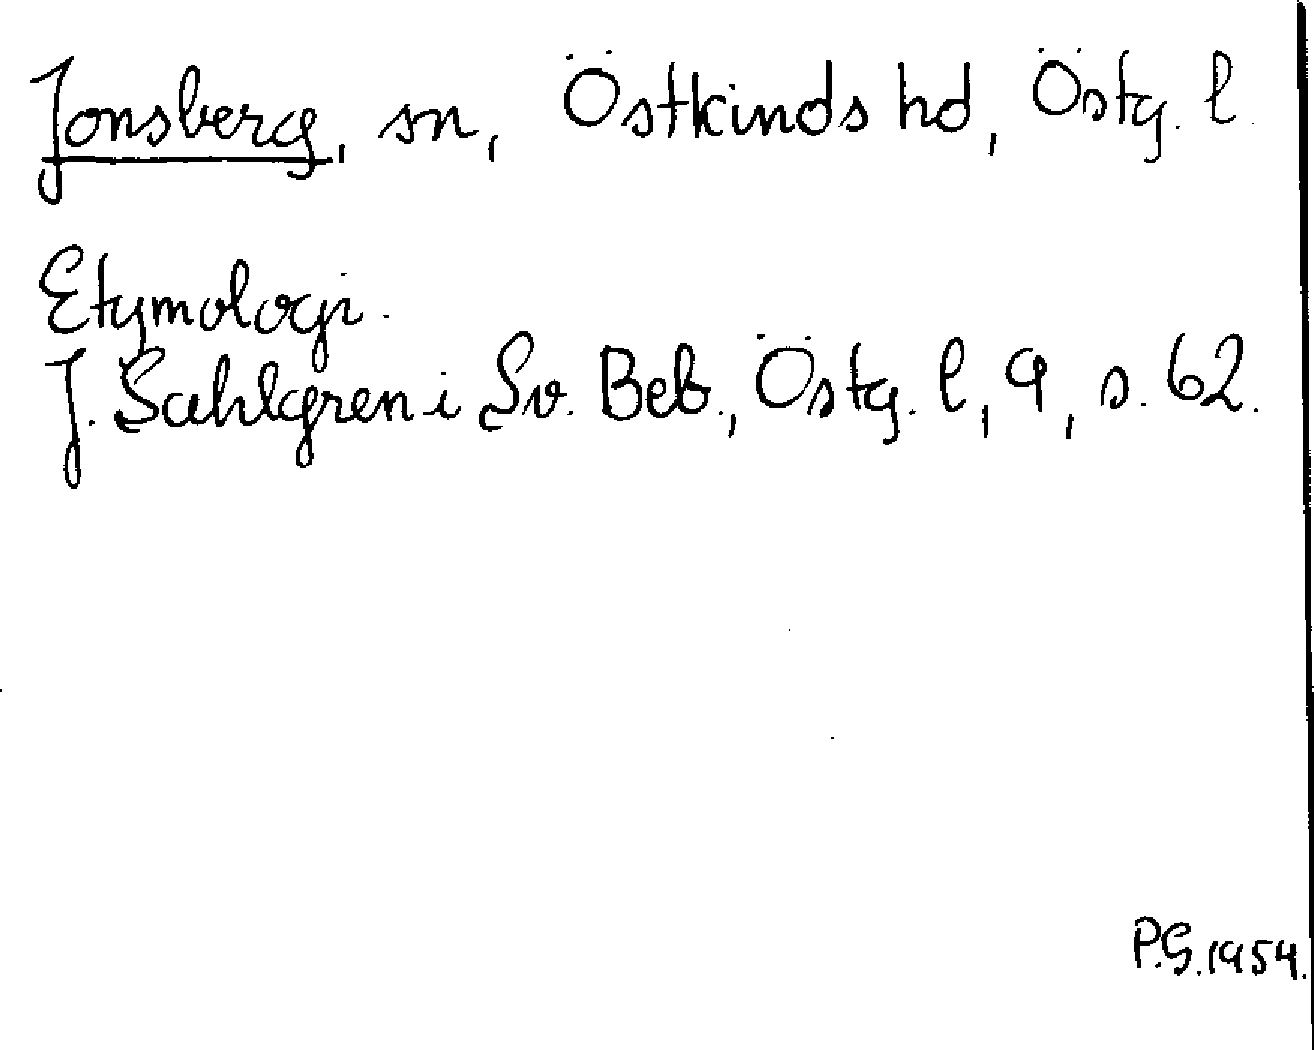 Jonsberg, sn, Östkinds hd, Östg. l.
Etymologi.
J. Sahlgren i Sv. Beb., Östg. l, 9, s. 62.
P.G. 1954.